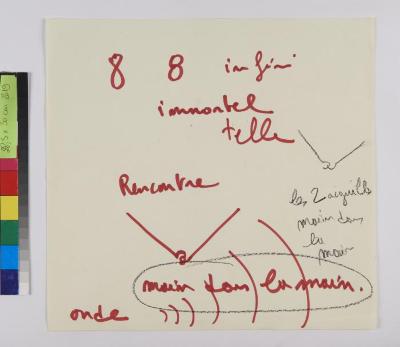 8 8 infini
immortel
telle
Rencontre
les 2 aiguilles
main dans
la
main
main dans la main.
onde